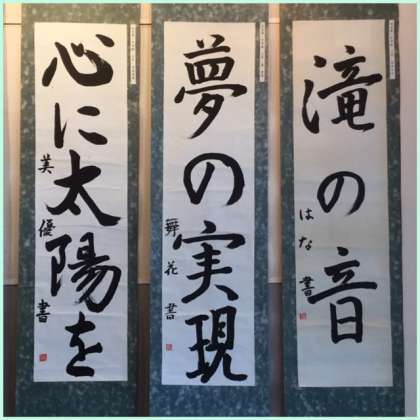 滝の音
はな書
夢の実現
舞花書
心に太陽を
美優書